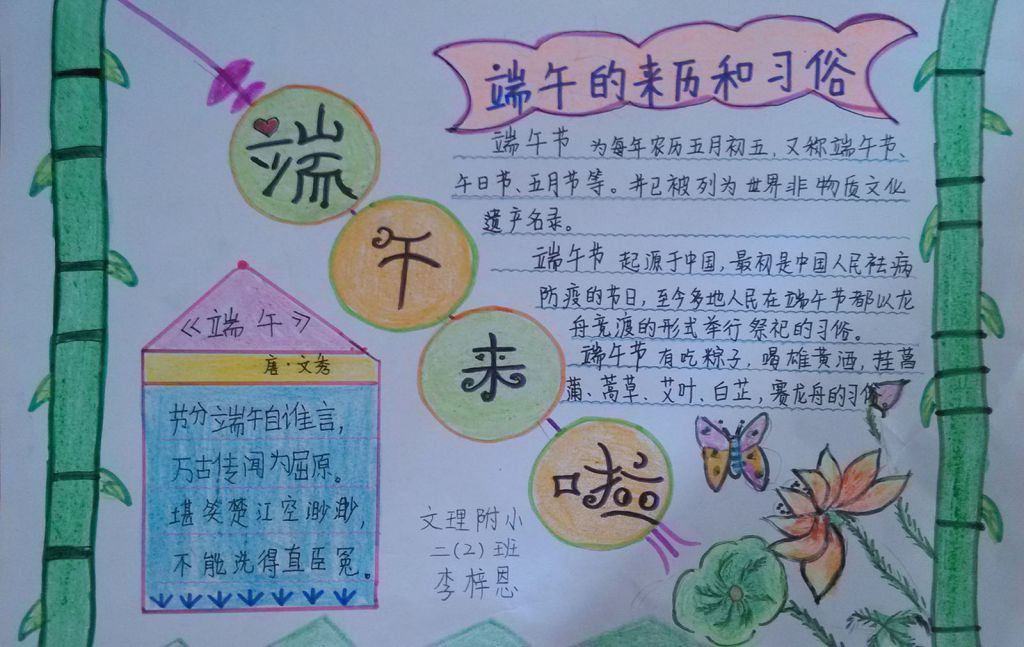 端午来啦
端午的来历和习俗
端午节 为每年农历五月初五，又称端午节、
午日节、五月节等。并已被列为世界非物质文化
遗产名录。
端午节 起源于中国，最初是中国人民祛病
防疫的节日，至今多地人民在端午节都以龙
舟竞渡的形式举行祭祀的习俗。
端午节 有吃粽子，喝雄黄酒，挂菖
蒲、蒿草、艾叶、白芷，赛龙舟的习俗。
《端午》
唐·文秀
节分端午自谁言，
万古传闻为屈原。
堪笑楚江空渺渺，
不能洗得直臣冤。
文理附小
二(2)班
李梓恩